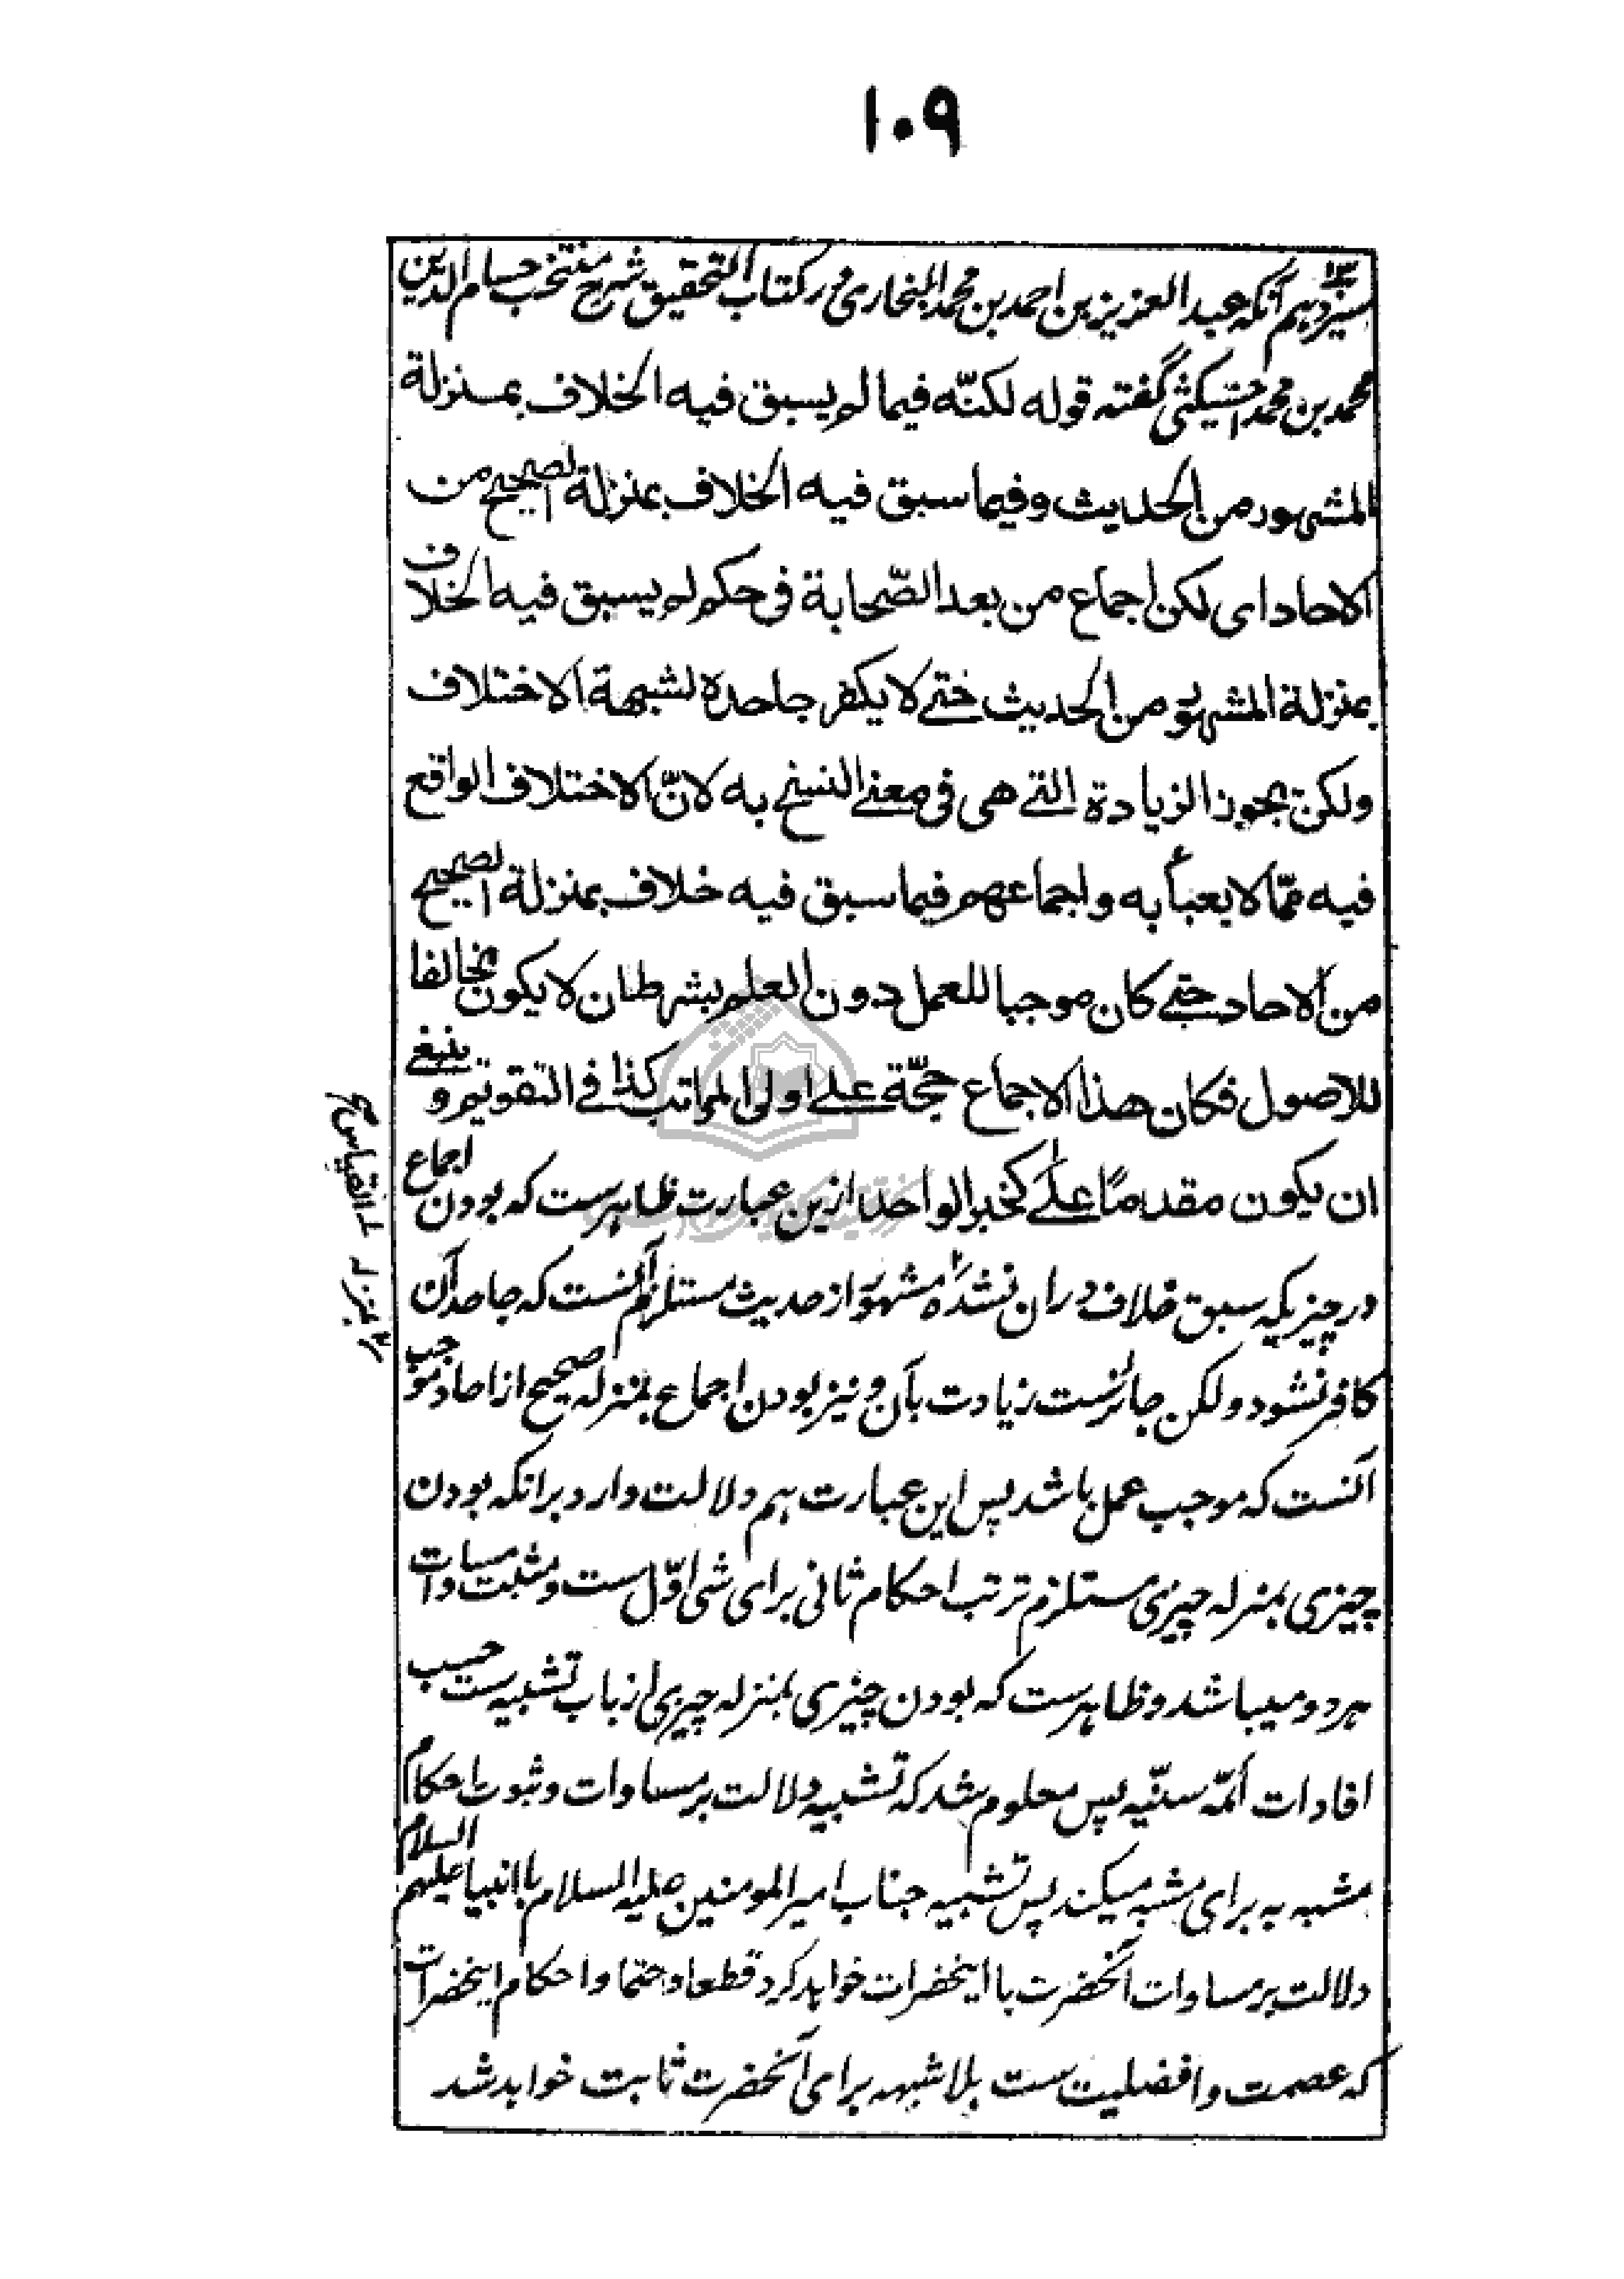 ۱۰۹
سیزدهم آنکه عبد العزیز بن احمد بن محمد البخاری در کتاب التحقیق شرح منتخب حسام الدین
محمد بن محمد اخسیکثی گفته قوله لکنّه فیما لم یسبق فیه الخلاف بمنزلة
المشهور من الحدیث وفیما سبق فیه الخلاف بمنزلة الصحیح من
الاحاد ای لکن اجماع من بعد الصّحابة فی حکم لم یسبق فیه الخلاف
بمنزلة المشهور من الحدیث حتی لا یکفر جاحده لشبهة الاختلاف
ولکن یجوز الزیادة التی هی فی معنی النسخ به لانّ الاختلاف الواقع
فیه ممّا لا یعبأ به واجماعهم فیما سبق فیه خلاف بمنزلة الصحیح
من الاحاد حتی کان موجبا للعمل دون العلم بشرط ان لا یکون مخالفا
للاصول فکان هذا الاجماع حجّة علی اولی المراتب کذا فی التقویم وینبغی
ان یکون مقدمًا علی کخبر الواحد ازین عبارت ظاهرست که بودن اجماع
در چیزیکه سبق خلاف دران نشده مشهور از حدیث مستلزم آنست که جاحد آن
کافر نشود ولکن جائزست زیادت بآن ونیز بودن اجماع بمنزله صحیح از احاد موجب
آنست که موجب عمل باشد پس این عبارت هم دلالت دارد برانکه بودن
چیزی بمنزله چیزی مستلزم ترتب احکام ثانی برای شی اوّل ست ومثبت مساوات
هر دو میباشد وظاهرست که بودن چیزی بمنزله چیزی از باب تشبیه ست حسب
افادات أئمّه سنّیه پس معلوم شد که تشبیه دلالت بر مساوات وثبوت احکام
مشبه به برای مشبه میکند پس تشبیه جناب امیر المومنین علیه السلام با انبیا علیهم السلام
دلالت بر مساوات آنحضرت با اینحضرات خواهد کرد قطعا وحتما واحکام اینحضرات
که عصمت وافضلیت ست بلاشبهه برای آنحضرت ثابت خواهد شد
القیاس
بمنزله